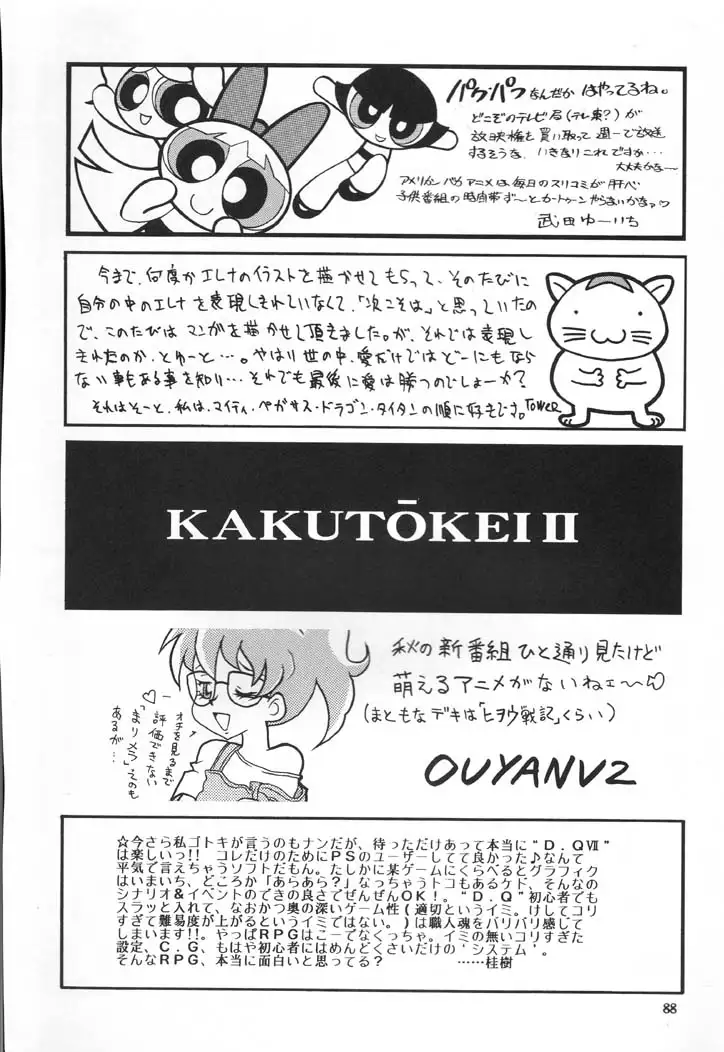 パワパフなんだかはやってるね。
どこぞのテレビ局(テレ東?)が
放映権を買い取って週一で放送
するそうな。いきなりこれですか…
大丈夫かな〜
アメリカンバカアニメは毎日のスリコミが肝ペ
子供番組の時間帯ずーっとカートゥーンやらまいかなァ♡
武田ゆーいち
今まで、何度かエレナのイラストを描かせてもらって、そのたびに
自分の中のエレナを表現しきれていなくて、「次こそは」と思っていたの
で、このたびはマンガを描かせて頂きました。が、それでは表現し
きれたのか、とゆーと…。やはり世の中、愛だけではどーにもなら
ない事もある事を知り…それでも最後に愛は勝つのでしょーか?
それはそーと、私は、マイティ・ペガサス・ドラゴン・タイタンの順に好きです。TOWER
KAKUTŌKEI II
秋の新番組ひと通り見たけど
萌えるアニメがないねェ〜♡
(まともなデキは「ヒヲウ戦記」くらい)
オチを見るまで
評価できない
♡「まりメラ」てえのも
あるが…
OUYANV2
☆今さら私ゴトキが言うのもナンだが、待っただけあって本当に“D.QⅦ”
は楽しいっ!! コレだけのためにPSのユーザーしてて良かった♪なんて
平気で言えちゃうソフトだもん。たしかに某ゲームにくらべるとグラフィク
はいまいち、どころか「あらあら?」なっちゃうトコもあるケド、そんなの
シナリオ&イベントのできの良さでぜんぜんOK!。“D.Q”初心者でも
スラッと入れて、なおかつ奥の深いゲーム性(適切というイミ。けしてコリ
すぎて難易度が上がるというイミではない。)は職人魂をバリバリ感じて
しまいます!!。やっぱRPGはこーでなくっちゃ。イミの無いコリすぎた
設定、C.G、もはや初心者にはめんどくさいだけの‘システム’。
そんなRPG、本当に面白いと思ってる? ……桂樹
88